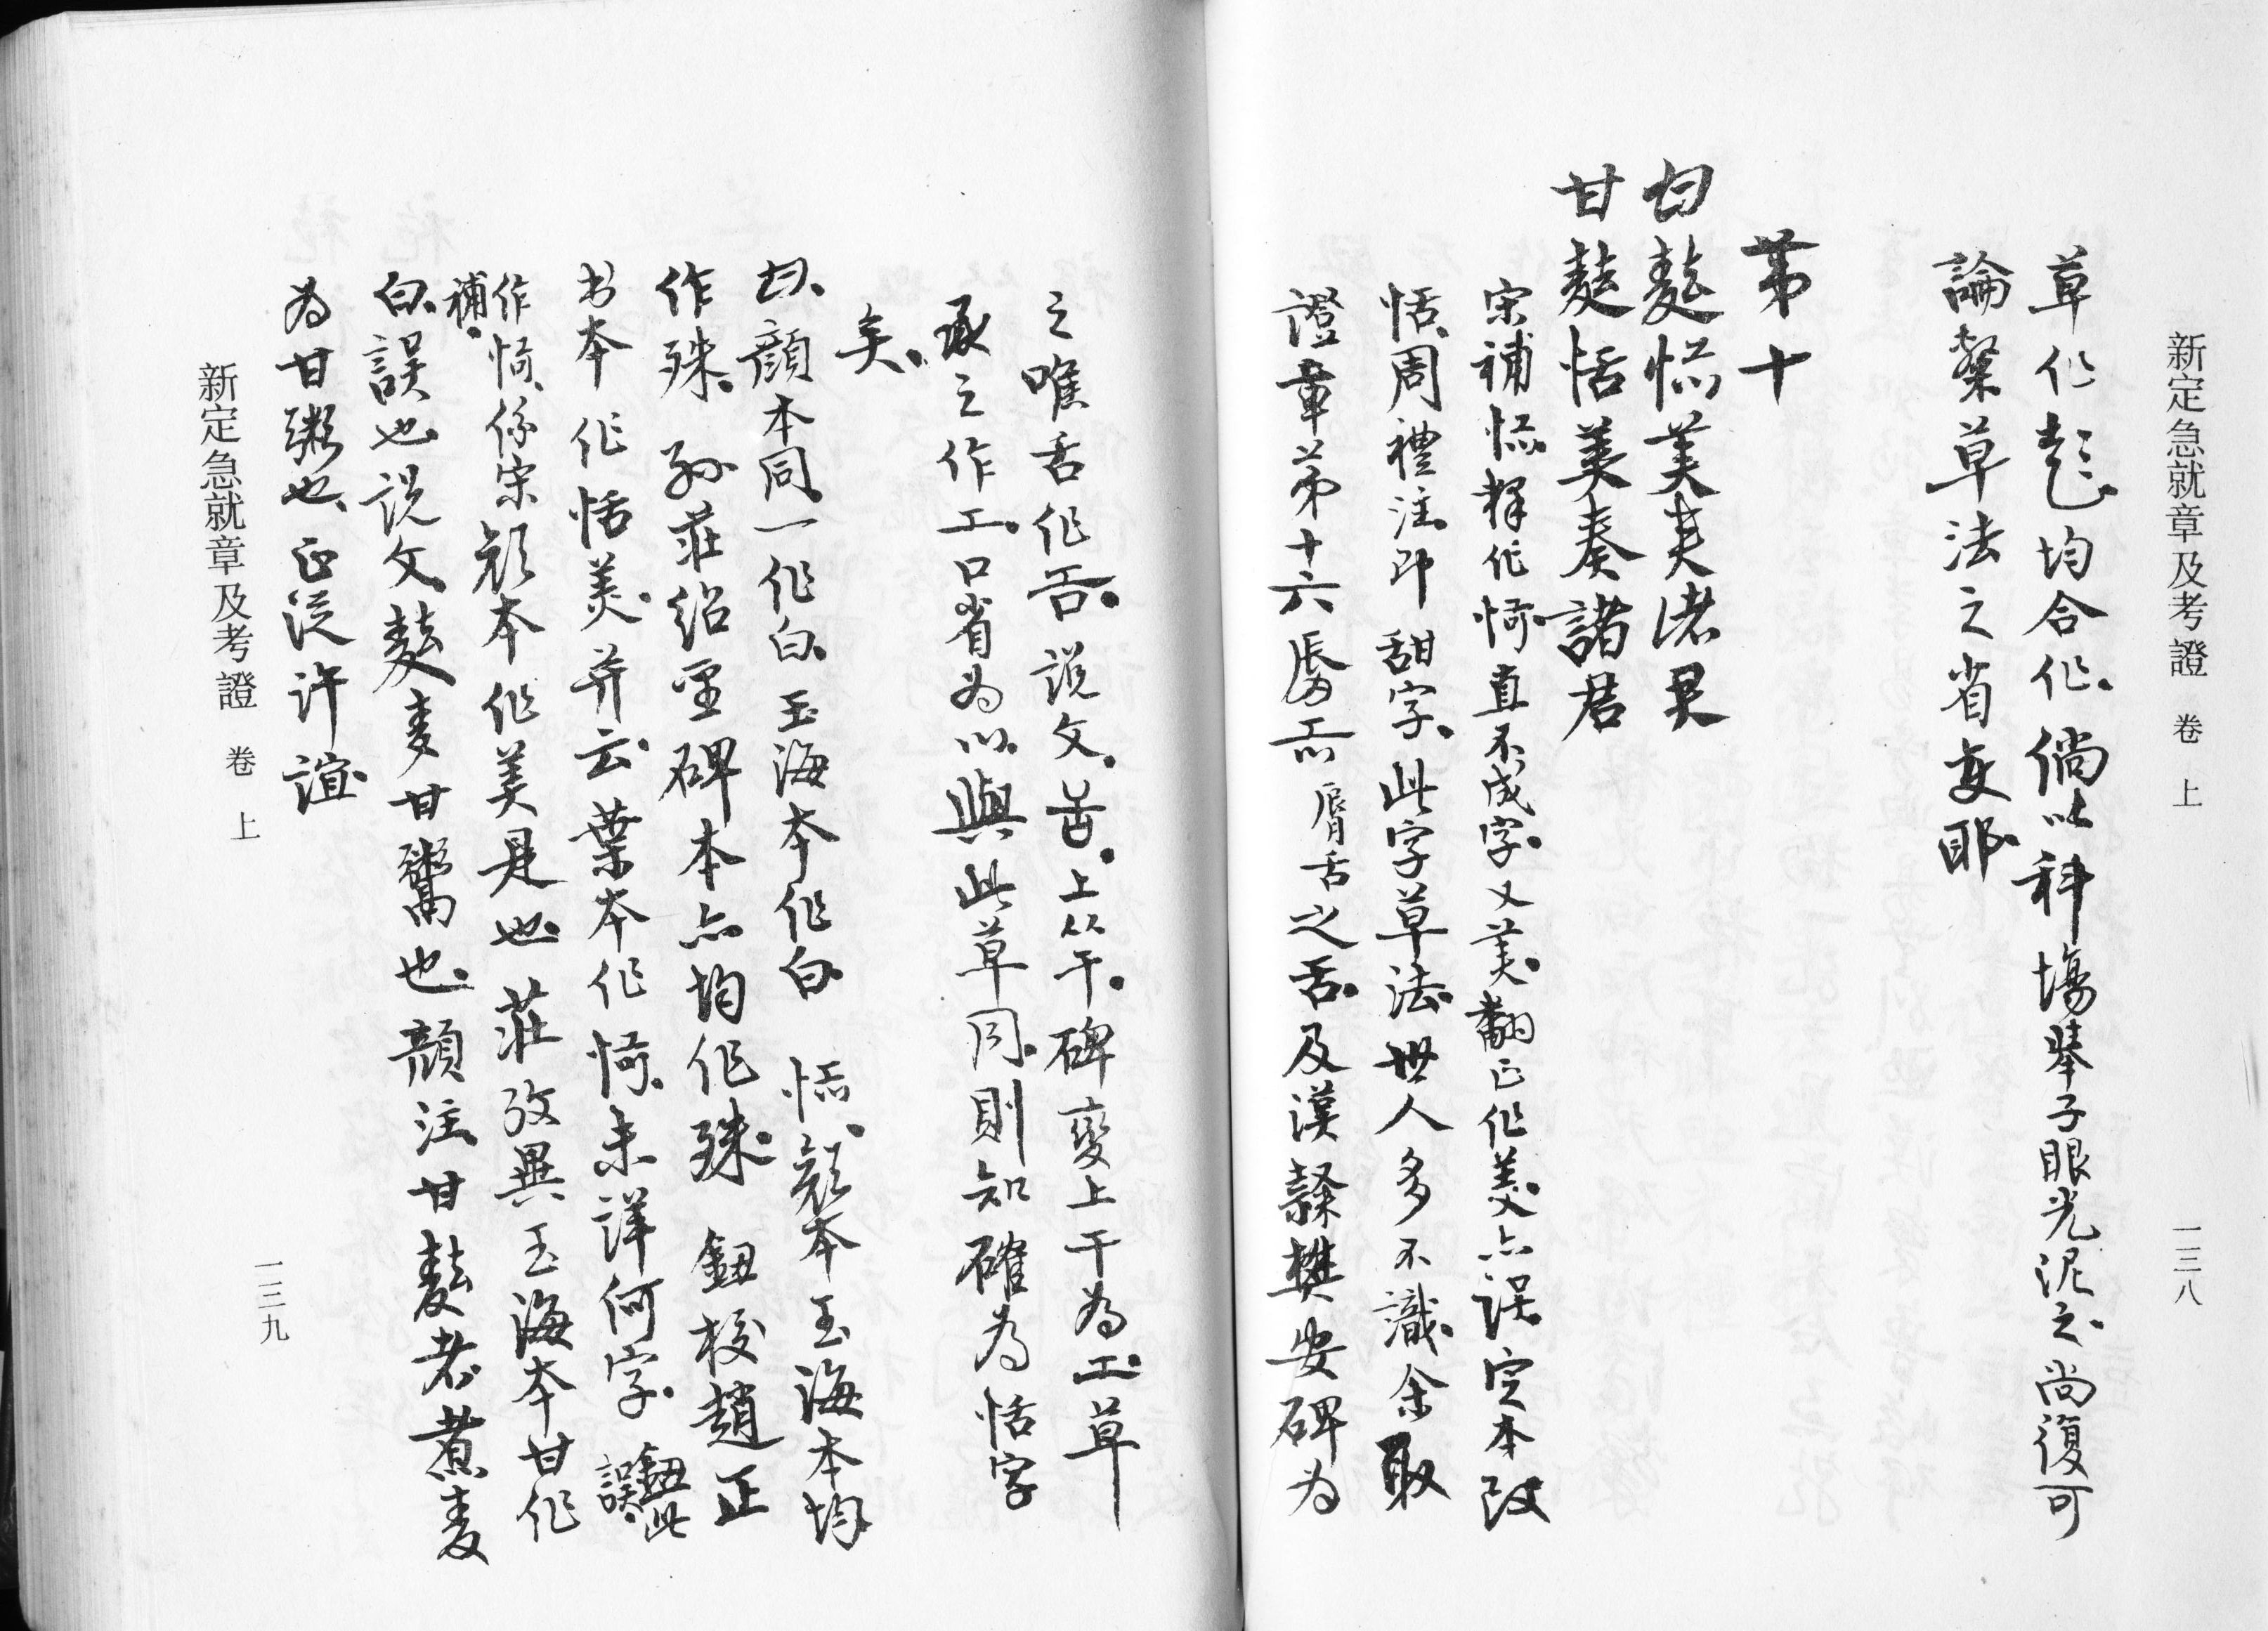 新定急就章及考證 卷上 一三八
草作 均合作。倘以科場舉子眼光泥之。尚復可
論槩草法之省变耶。
苐十
甘麮恬美奏诸君
甘麮恬美奏諸君
宋補 。釋作㤎。直不成字。又美。翻正作羙。亦误。定本改
恬。周禮注。即甜字。此字草法。世人多不識。余取
證章苐十六 脣舌之舌。及漢隸樊安碑为
之唯舌作 。説文。舌。上从干。碑變上干為工。草
承之作工。口省为 。與此草同。則知確为恬字
矣。
甘。顔本同。一作白。玉海本作白 恬。顔本玉海本均
作殊。孙莊绍聖碑本亦均作殊。鈕校趙正
书本作恬美。并云。葉本作㤎。未詳何字。鈕此誤。
作㤎。係宋補。顔本作美是也。莊攷異玉海本甘作
白。誤也。説文。麮。麥甘鬻也。顔注。甘麮者。煮麦
为甘粥也。正從许誼。
新定急就章及考證 卷上 一三九